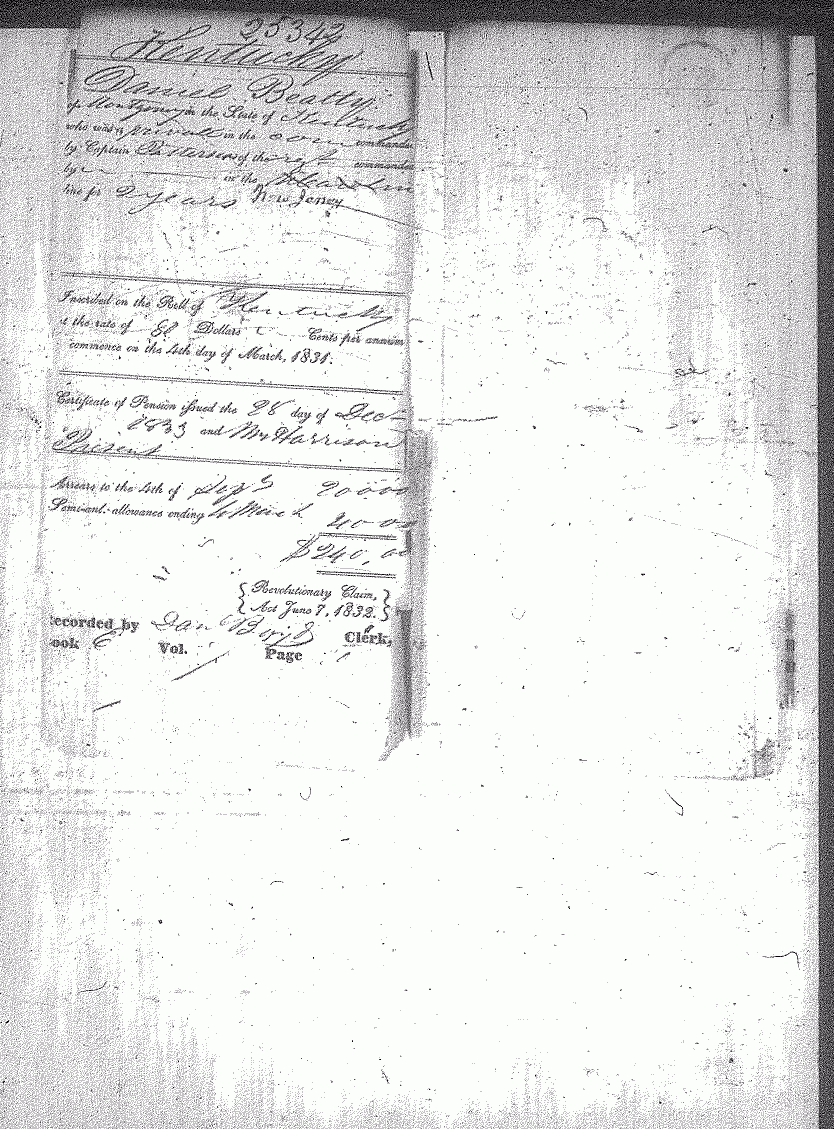 25342
Kentucky
Daniel Beatty
of Montgomery in the State of Kentucky
who was a private in the com commanded
by Captain Patterson of the regt commanded
by in the
line for 2 years New Jersey
Inscribed on the Roll of Kentucky
at the rate of 80 Dollars Cents per annum
commence on the 4th day of March, 1831.
Certificate of Pension issued the 28 day of Dec
1833 and Mr Harrison
Present
Arrears to the 4th of Sept 200 00
Semi-anl. allowance ending 4 March 40 00
$240,00
Revolutionary Claim,
Act June 7, 1832.
ecorded by Dan Clerk,
ook E Vol. Page